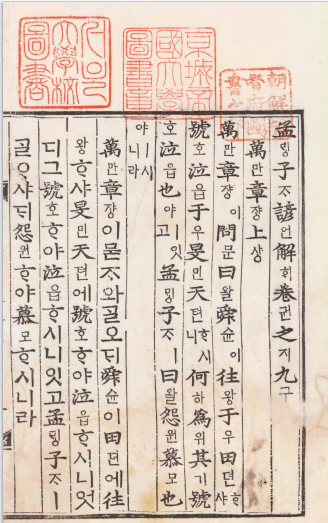 孟ᄆᆡᆼ子ᄌᆞ諺언解ᄒᆡ卷권之지九구
萬만章쟝上샹
萬만章쟝이問문曰왈舜슌이往왕于우田뎐ᄒᆞ샤
號호泣읍于우旻민天텬ᄒᆞ시니何하爲위其기號
호泣읍也야ㅣ잇고孟ᄆᆡᆼ子ᄌᆞㅣ曰왈怨원慕모也
야ㅣ시니라
萬만章쟝이묻ᄌᆞ와ᄀᆞᆯ오ᄃᆡ舜슌이田뎐에往
왕ᄒᆞ샤旻민天텬에號호ᄒᆞ야泣읍ᄒᆞ시니엇
디그號호ᄒᆞ야泣읍ᄒᆞ시니잇고孟ᄆᆡᆼ子ᄌᆞㅣ
ᄀᆞᆯᄋᆞ샤ᄃᆡ怨원ᄒᆞ야慕모ᄒᆞ시니라
京城帝
國大學
圖書章
大學校
圖書